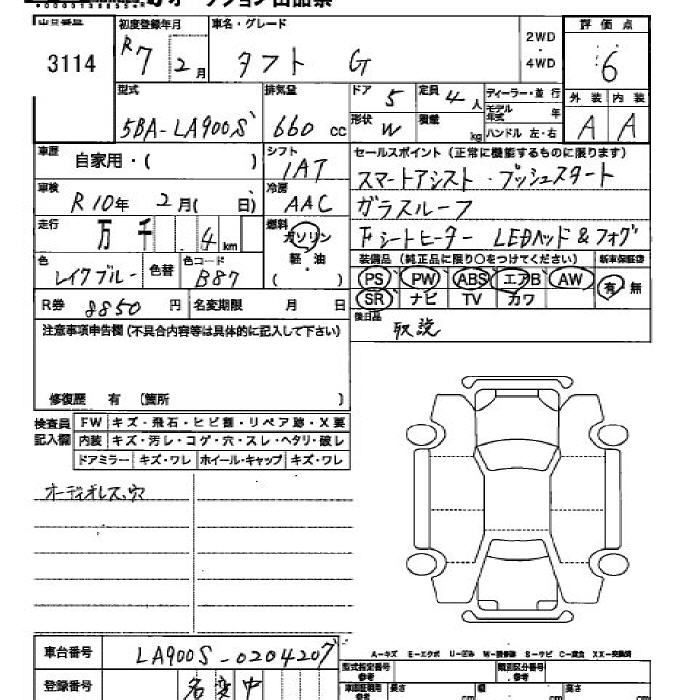 オークション出品票
出品番号 初度登録年月 車名・グレード 2WD・4WD 評価点
3114 R7 2月 タフト G 6
型式 排気量 ドア 5 定員 4人 ディーラー・並行 外装 内装
5BA-LA900S 660cc 形状 W 積載 kg モデル年式 年 ハンドル 左・右 A A
車歴 自家用・( ) シフト 1AT セールスポイント(正常に機能するものに限ります)
スマートアシスト・プッシュスタート
車検 R10年 2月( 日) 冷房 AAC ガラスルーフ
走行 万千 4km 燃料 ガソリン 軽・油 ( ) シートヒーター LEDヘッド&フォグ
色 レイクブルー 色替 色コード B87
装備品(純正品に限り○をつけてください) 新車保証書
PS PW ABS エアB AW 有・無
SR ナビ TV カワ
R券 8850円 名変期限 月 日 後日品 取説
注意事項申告欄(不具合内容等は具体的に記入して下さい)
修復歴 有 (箇所 )
検査員記入欄 FW キズ・飛石・ヒビ割・リペア跡・X要
内装 キズ・汚レ・コゲ・穴・スレ・ヘタリ・破レ
ドアミラー キズ・ワレ ホイール・キャップ キズ・ワレ
オーディオレス、穴
車台番号 LA900S-0204207
A-キズ E-エクボ U-凹み
型式指定番号 参考 類別区分番号 参考
登録番号 名変中 長さ cm 幅 cm 高さ cm